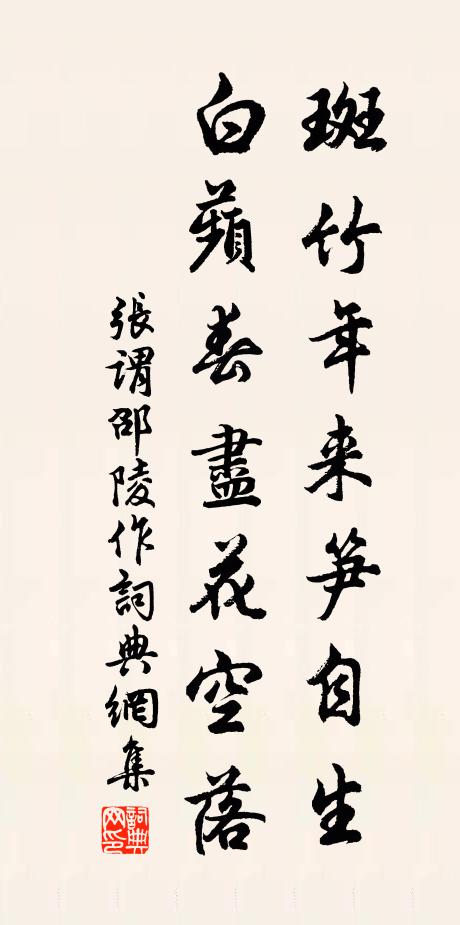 斑竹年来笋自生
白蘋春盡花空落
張謂邵陵作詞典網集
詞典
網印